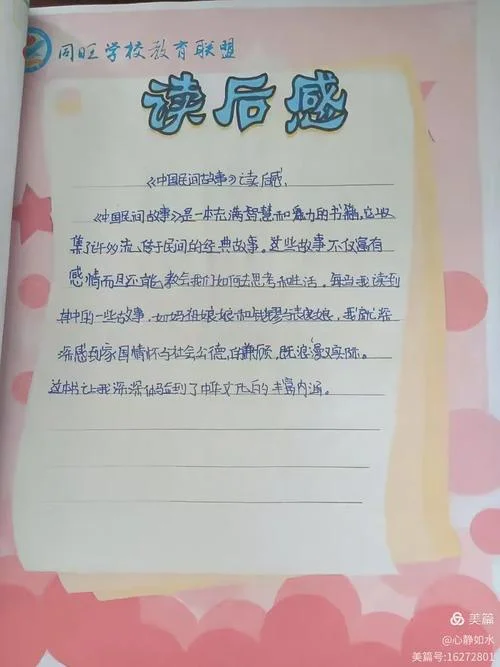 同旺学校教育联盟
读后感
《中国民间故事》读后感
《中国民间故事》是一本充满智慧和魅力的书籍,它收
集了许多流传于民间的经典故事。这些故事不仅富有
感情而且还能教会我们如何去思考和生活。每当我读到
其中的一些故事,如妈祖娘娘和钱镠与表娘,我就深
深感到家国情怀与社会公德,的兼顾,既浪漫又实际。
这本书让我深深体验到了中华文化的丰富内涵。
美篇
@心静如水
美篇号:16272801